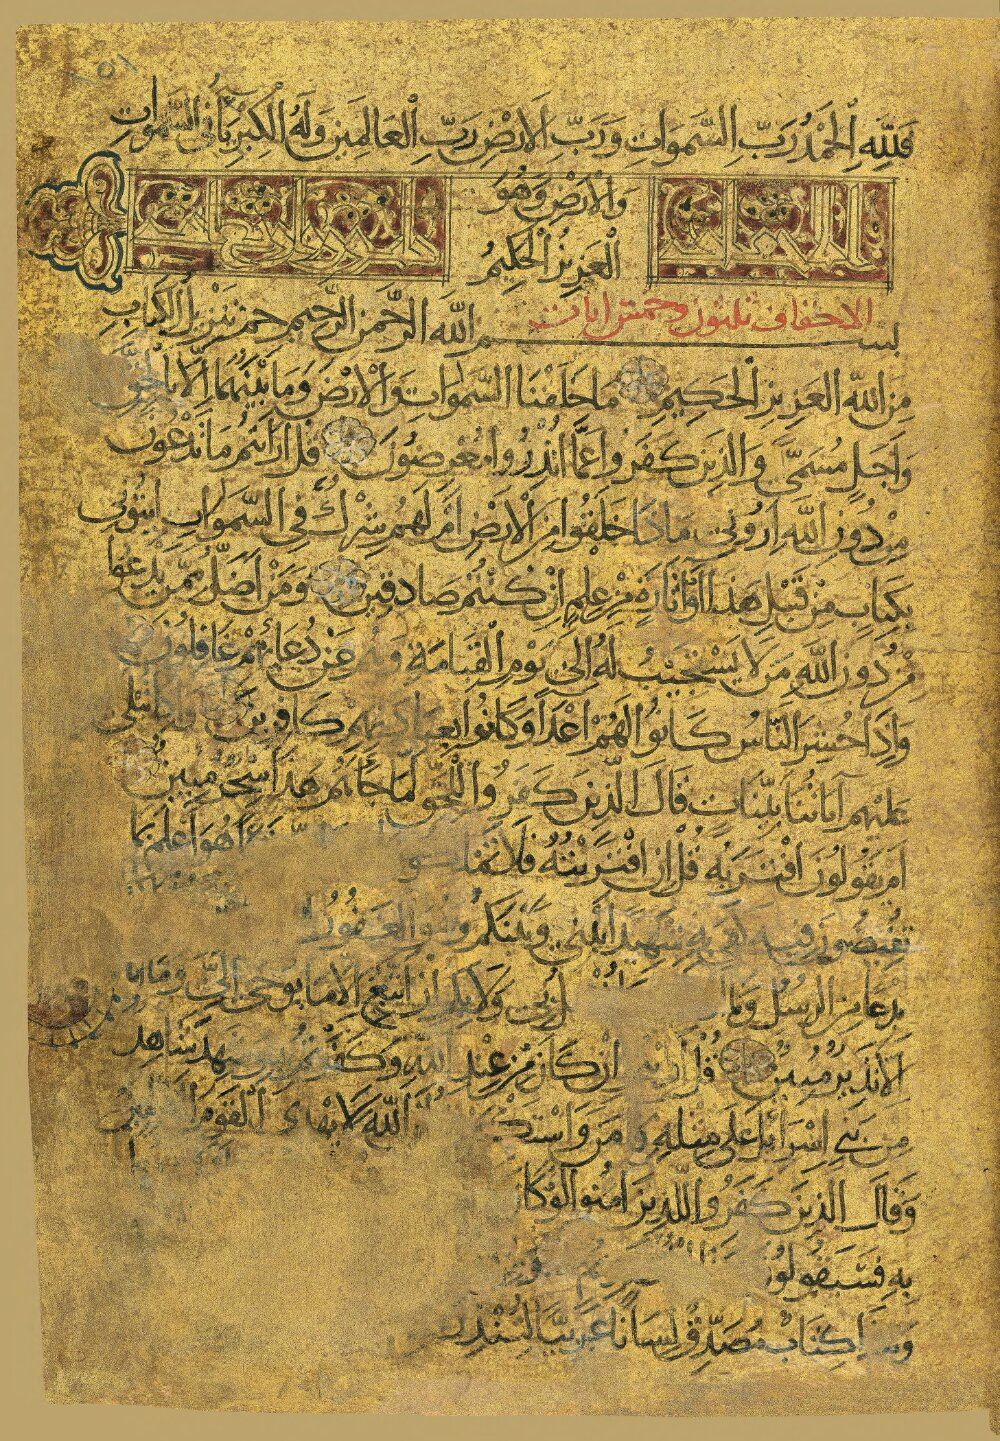 فَلِلَّهِ الْحَمْدُ رَبِّ السَّمَوَاتِ وَرَبِّ الْأَرْضِ رَبِّ الْعَالَمِينَ وَلَهُ الْكِبْرِيَاءُ فِي السَّمَوَاتِ
وَالْأَرْضِ وَهُوَ
الْعَزِيزُ الْحَكِيمُ
الاحقاف ثلثون وخمس ايات
بسم الله الرَّحْمَنِ الرَّحِيمِ حم تَنْزِيلُ الْكِتَابِ
مِنَ اللَّهِ الْعَزِيزِ الْحَكِيمِ مَا خَلَقْنَا السَّمَوَاتِ وَالْأَرْضَ وَمَا بَيْنَهُمَا إِلَّا بِالْحَقِّ
وَأَجَلٍ مُسَمًّى وَالَّذِينَ كَفَرُوا عَمَّا أُنْذِرُوا مُعْرِضُونَ قُلْ أَرَأَيْتُمْ مَا تَدْعُونَ
مِنْ دُونِ اللَّهِ أَرُونِي مَاذَا خَلَقُوا مِنَ الْأَرْضِ أَمْ لَهُمْ شِرْكٌ فِي السَّمَوَاتِ ائْتُونِي
بِكِتَابٍ مِنْ قَبْلِ هَذَا أَوْ أَثَارَةٍ مِنْ عِلْمٍ إِنْ كُنْتُمْ صَادِقِينَ وَمَنْ أَضَلُّ مِمَّنْ يَدْعُوا
مِنْ دُونِ اللَّهِ مَنْ لَا يَسْتَجِيبُ لَهُ إِلَى يَوْمِ الْقِيَامَةِ وَهُمْ عَنْ دُعَائِهِمْ غَافِلُونَ
وَإِذَا حُشِرَ النَّاسُ كَانُوا لَهُمْ أَعْدَاءً وَكَانُوا بِعِبَادَتِهِمْ كَافِرِينَ وَإِذَا تُتْلَى
عَلَيْهِمْ آيَاتُنَا بَيِّنَاتٍ قَالَ الَّذِينَ كَفَرُوا لِلْحَقِّ لَمَّا جَاءَهُمْ هَذَا سِحْرٌ مُبِينٌ
أَمْ يَقُولُونَ افْتَرَاهُ قُلْ إِنِ افْتَرَيْتُهُ فَلَا تَمْلِكُو هُوَ أَعْلَمُ بِمَا
تُفِيضُونَ فِيهِ كَفَى بِهِ شَهِيدًا بَيْنِي وَبَيْنَكُمْ وَهُوَ الْغَفُورُ
بِدْعًا مِنَ الرُّسُلِ وَمَا بِي وَلَا بِكُمْ إِنْ أَتَّبِعُ إِلَّا مَا يُوحَى إِلَيَّ وَمَا أَنَا
إِلَّا نَذِيرٌ مُبِينٌ قُلْ إِنْ كَانَ مِنْ عِنْدِ اللَّهِ وَكَفَرْتُمْ بِهِ وَشَهِدَ شَاهِدٌ
مِنْ بَنِي إِسْرَائِيلَ عَلَى مِثْلِهِ فَآمَنَ وَاسْتَكْ اللَّهَ لَا يَهْدِي الْقَوْمَ الظَّالِمِينَ
وَقَالَ الَّذِينَ كَفَرُوا لِلَّذِينَ آمَنُوا لَوْ كَا
بِهِ فَسَيَقُولُونَ
كِتَابٌ مُصَدِّقٌ لِسَانًا عَرَبِيًّا لِيُنْذِرَ